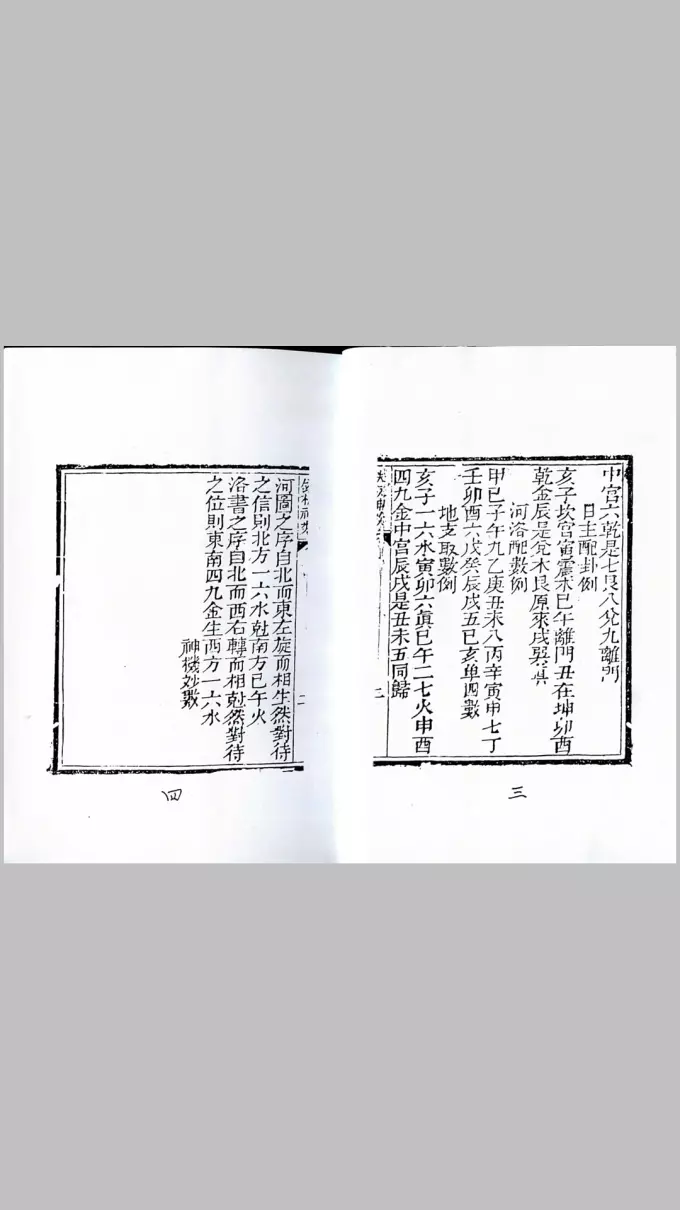 中宮六乾是七艮八兌九離門
日主配卦例
亥子坎宮寅震木巳午離門丑在坤卯酉
乾金辰是兌木艮原來戌巽
河洛配數例
甲己子午九乙庚丑未八丙辛寅申七丁
壬卯酉六戊癸辰戌五巳亥单四數
地支取數例
亥子一六水寅卯六眞巳午二七火申酉
四九金中宮辰戌是丑未五同歸
二
三
河圖之序自北而東左旋而相生然對待
之信則北方一六水尅南方巳午火
洛書之序自北而西右轉而相尅然對待
之位則東南四九金生西方一六水
神機妙數
二
四